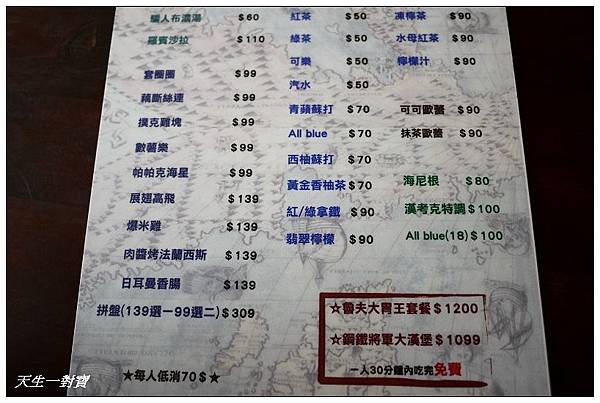 騙人布濃湯 $60
羅賓沙拉 $110
套圈圈 $99
藕斷絲連 $99
撲克雞塊 $99
數薯樂 $99
帕帕克海星 $99
展翅高飛 $139
爆米雞 $139
肉醬烤法蘭西斯 $139
日耳曼香腸 $139
拼盤(139選一99選二) $309
★每人低消70$★
紅茶 $50
綠茶 $50
可樂 $50
汽水 $50
青蘋蘇打 $70
All blue $70
西柚蘇打 $70
黃金香柚茶 $70
紅/綠拿鐵 $90
翡翠檸檬 $90
凍檸茶 $90
水母紅茶 $90
檸檬汁 $90
可可歐蕾 $90
抹茶歐蕾 $90
海尼根 $80
漢考克特調 $100
All blue(18) $100
☆魯夫大胃王套餐 $1200
☆鋼鐵將軍大漢堡 $1099
一人30分鐘內吃完免費
天生一對寶